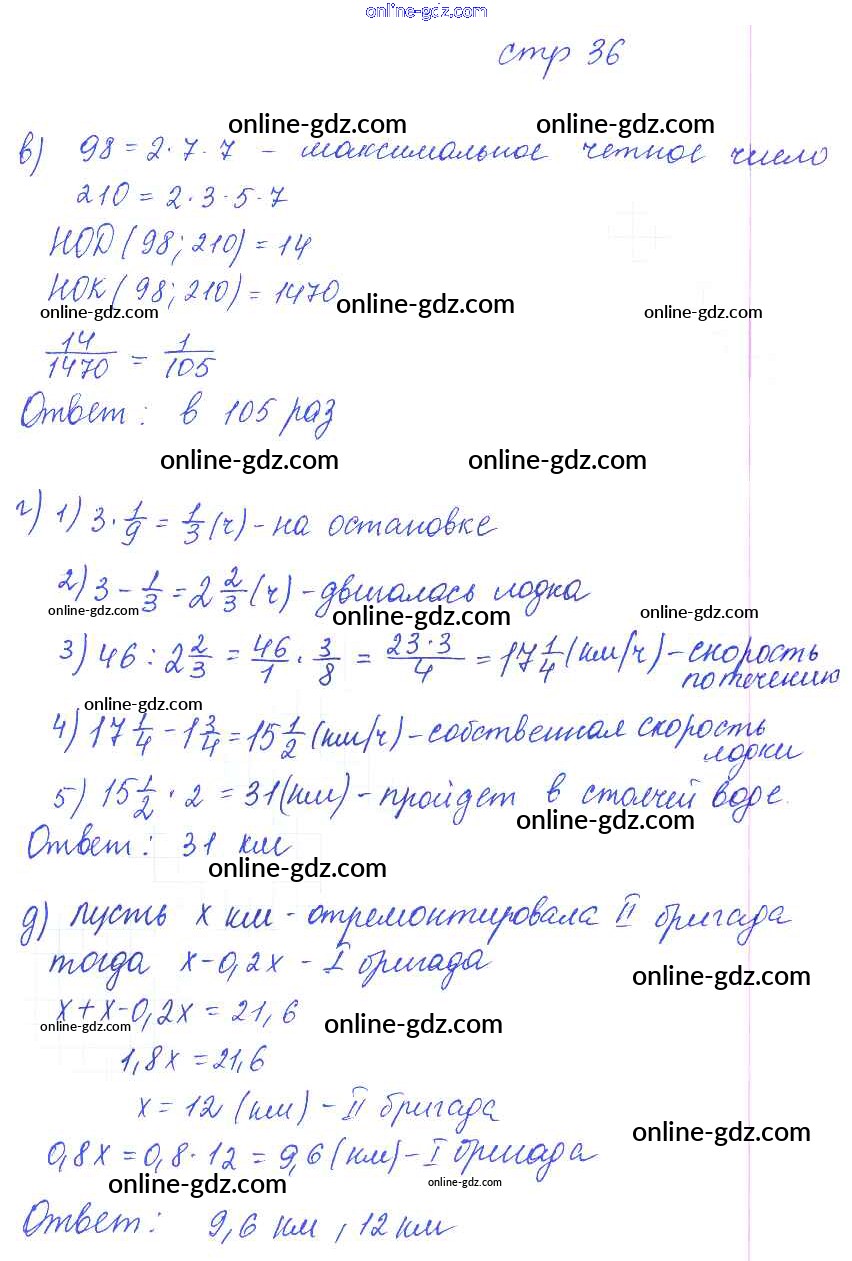 online-gdz.com
стр 36
online-gdz.com online-gdz.com
в) 98 = 2·7·7 - максимальное четное число
210 = 2·3·5·7
НОД (98; 210) = 14
НОК (98; 210) = 1470
online-gdz.com online-gdz.com online-gdz.com
14/1470 = 1/105
Ответ: в 105 раз
online-gdz.com online-gdz.com
г) 1) 3 · 1/9 = 1/3 (ч) - на остановке
2) 3 - 1/3 = 2 2/3 (ч) - двигалась лодка
online-gdz.com online-gdz.com online-gdz.com
3) 46 : 2 2/3 = 46/1 · 3/8 = 23·3/4 = 17 1/4 (км/ч) - скорость
по течению
online-gdz.com
4) 17 1/4 - 1 3/4 = 15 1/2 (км/ч) - собственная скорость
лодки
5) 15 1/2 · 2 = 31 (км) - пройдет в стоячей воде.
online-gdz.com
Ответ: 31 км
online-gdz.com
д) пусть х км - отремонтировала II бригада
тогда х - 0,2х - I бригада
online-gdz.com
х + х - 0,2х = 21,6
online-gdz.com online-gdz.com
1,8х = 21,6
х = 12 (км) - II бригада
online-gdz.com
0,8х = 0,8 · 12 = 9,6 (км) - I бригада
online-gdz.com online-gdz.com
Ответ: 9,6 км, 12 км